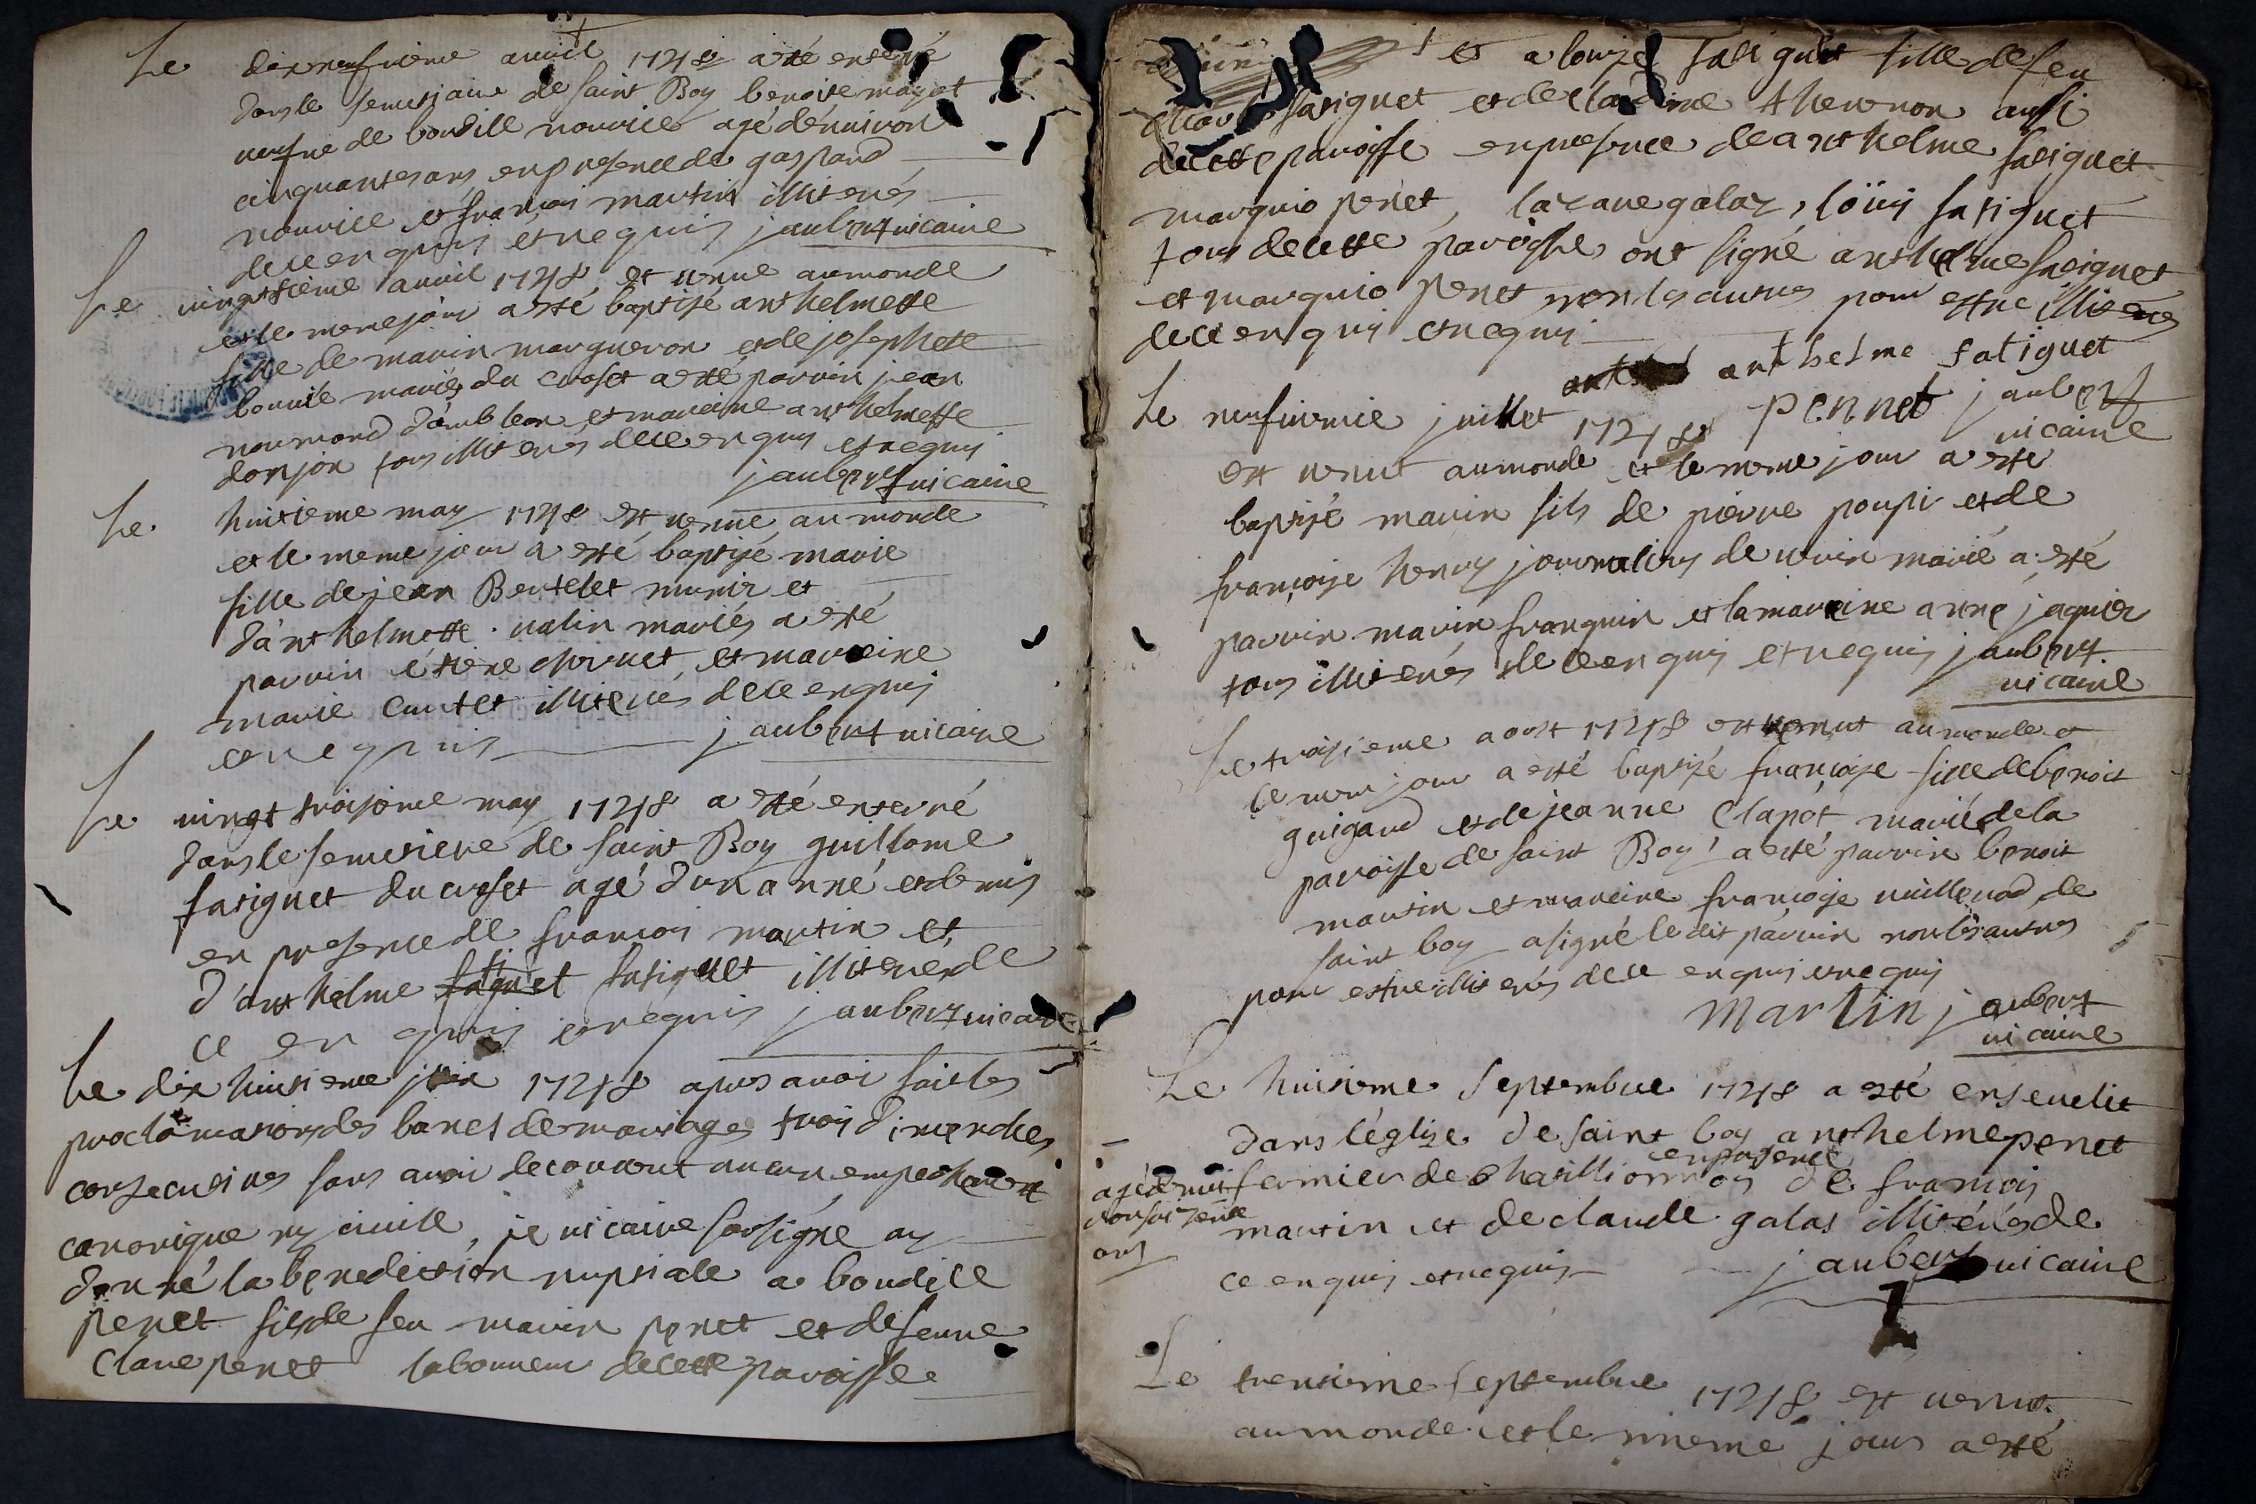 Le dixneufvieme avvil 1748 a eté enterré
dans le semetiaire de saint Boy benoite mayot
veufve de boudille nouvice agé denviron
cinquantes ans en presence de gaspard
nouvice et françois martin illiterés
de ce enquis et requis jaubert vicaire
Le vingtsieme avvil 1748 est venue au monde
et le meme jour a esté baptisé anthelmette
fille de marin margueron et de josephette
bonnile mariés du croset a esté parrin jean
noumond d'ambleon et mareine anthelmette
donjon tous illiterés de ce enquis et requis
jaubert vicaire
Le huitieme may 1748 est venue au monde
et le meme jour a esté baptisé marie
fille de jean Bertelet munir et
d'anthelmette valin mariés a esté
parrin étiene chivuet et mareine
marie cuntet illiterés de ce enquis
et requis jaubert vicaire
Le vingt troisiome may 1748 a esté enterré
dans le semetiere de saint Boy guillome
fatiguet du croset agé d'un anné et demis
en presence de françois martin et
d'anthelme fatiguet illiteres de
ce en quis et requis jaubert vicaire
Le dix huitieme juin 1748 apres avoir fait les
proclamations des bancs de mariages trois dimenches
consecutives sans avoir decouvert aucun empechement
canonique ny civille, je vicaire sousigne ay
donné la benediction nuptiale a boudile
penet fils de feu marin penet et de feune
Clare penet labonneur de cette paroisse
et a louise fatiguet fille de feu
fatiguet et de claudine thevenon aussi
de cette paroisse en presence de anthelme fatiguet
marquio penet, lazare galaz, loüis fatiguet
tous de cette paroisse ont signé anthelme fatiguet
et marquio penet non les autres pour estre illiteres
de ce enquis et requis
anthelme fatiguet
pennet jaubert
vicaire
Le neufviemie juillet 1748
est venut au monde et le meme jour a esté
baptisé marin fils de pierre poupi et de
françoise henry journaliers de virin marié a esté
parrin marin franquin et la mareine anne jaquier
tous illiterés de ce enquis et requis jaubert
vicaire
Le troisieme aoust 1748 est venut au monde et
le mem jour a esté baptisé françoise fille de benoit
guigard et de jeanne Clapot mariés de la
paroisse de saint Boy, a esté parrin benoit
martin et mareine françoise vuillerod de
saint boy a signé le dit parrin non les autres
pour estre illiterés de ce enquis et requis
martin jaubert
vicaire
Le huitieme septembre 1748 a esté ensevelit
dans l'église de saint boy anthelme penet
fermier de en presence de françois
agé d'environ soizente ans
martin et de claude galas illiterés de
ce enquis et requis jaubert vicaire
Le trentieme septembre 1748 est venut
au monde et le mneme jour a esté